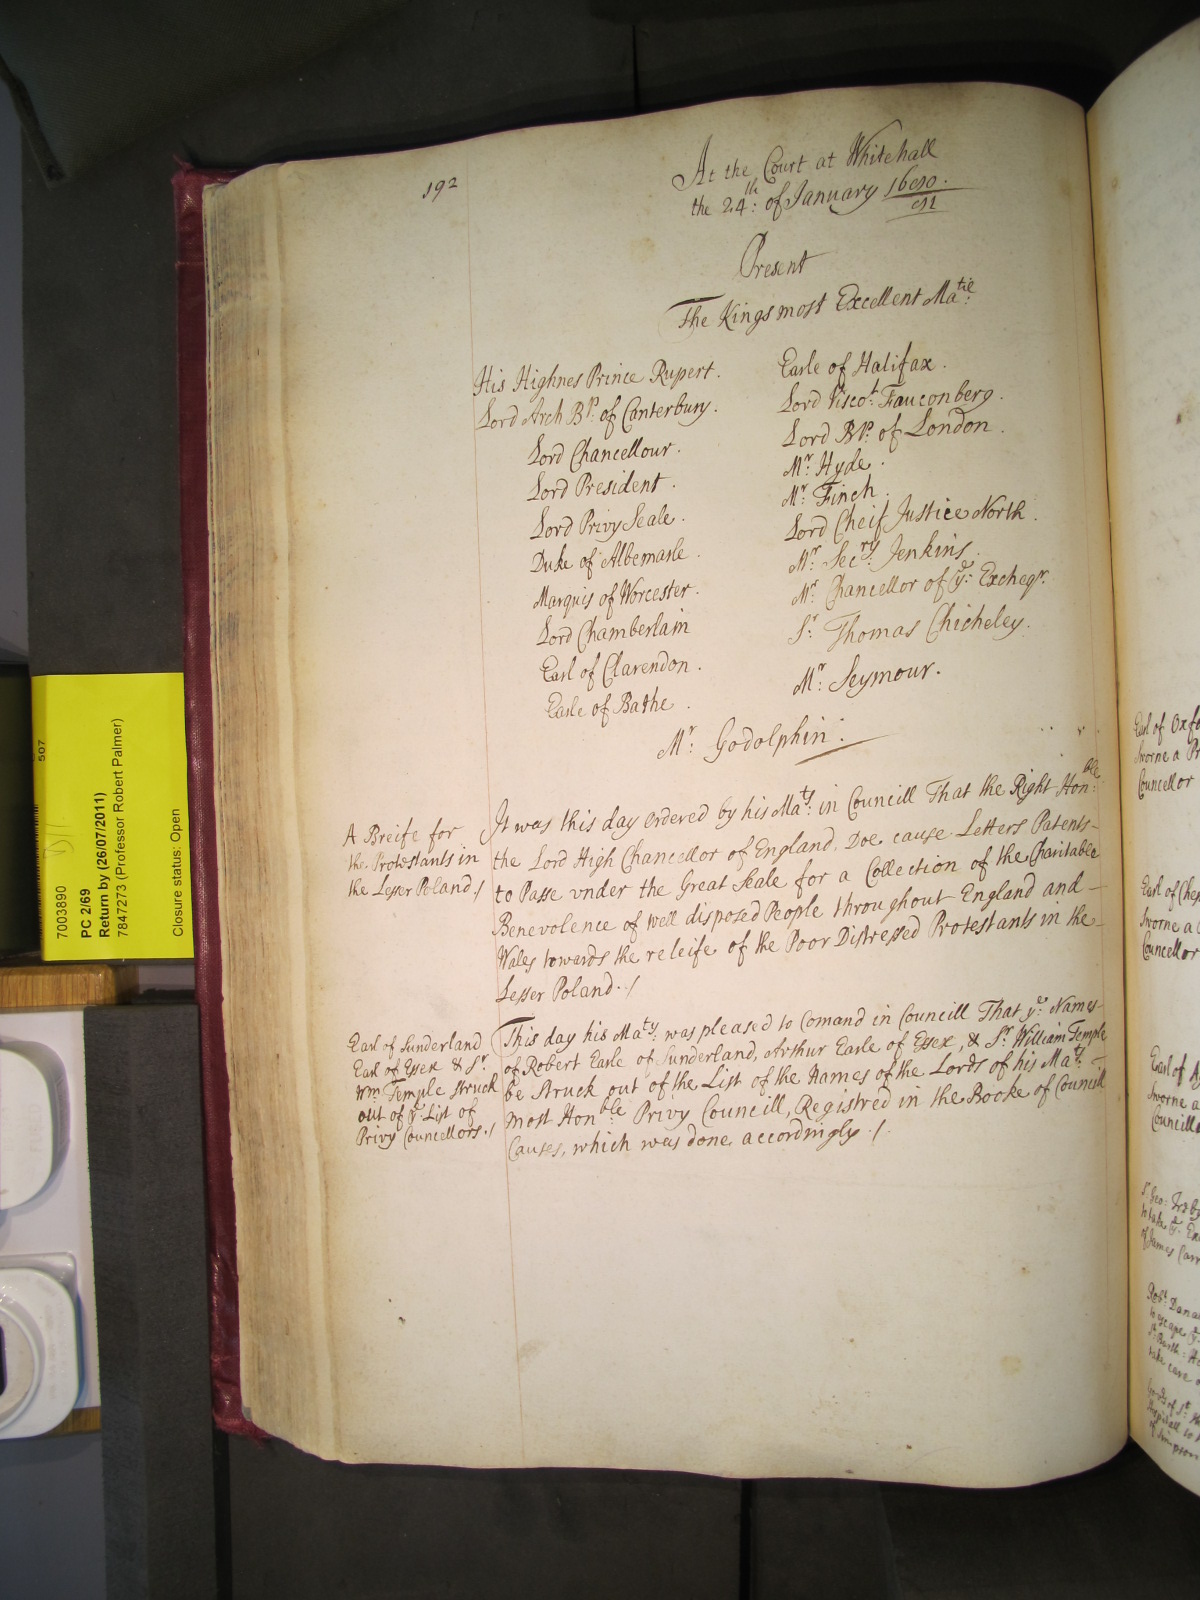 192
At the Court at Whitehall
the 24th: of January 1680.
81
Present
The Kings most Excellent Matie:
His Highnes Prince Rupert.
Lord Arch Bp. of Canterbury.
Lord Chancellour.
Lord President.
Lord Privy Seale.
Duke of Albemarle.
Marquis of Worcester.
Lord Chamberlain
Earl of Clarendon.
Earle of Bathe.
Earle of Halifax.
Lord Viscot: Fauconberg.
Lord Bp: of London.
Mr: Hyde.
Mr: Finch.
Lord Cheif Justice North.
Mr: Secry: Jenkins.
Mr: Chancellor of ye: Excheqr.
Sr: Thomas Chicheley.
Mr: Seymour.
Mr: Godolphin:
A Breife for
the Protestants in
the Lesser Poland./
It was this day ordered by his Mats: in Councill That the Right Honble:
the Lord High Chancellor of England, Doe cause Letters Patents
to Passe vnder the Great Seale for a Collection of the Charitable
Benevolence of well disposed People throughout England and
Wales towards the releife of the Poor Distressed Protestants in the
Lesser Poland./
Earl of Sunderland
Earl of Essex & Sr.
Wm Temple struck
out of ye List of
Privy Councellors./
This day his Maty: was pleased to Comand in Councill That ye: Names
of Robert Earle of Sunderland, Arthur Earle of Essex, & Sr. William Temple
be Struck out of the List of the Names of the Lords of his Mats:
most Honble: Privy Councill, Registred in the Booke of Councill
Causes, which was done accordingly./.
Earl of Oxfo
sworne a Pr
Councellor
Earl of Ches
sworne a
Councellor
Earl of
sworne a
Councello
507
7003890
PC 2/69
Return by (26/07/2011)
7847273 (Professor Robert Palmer)
Closure status: Open